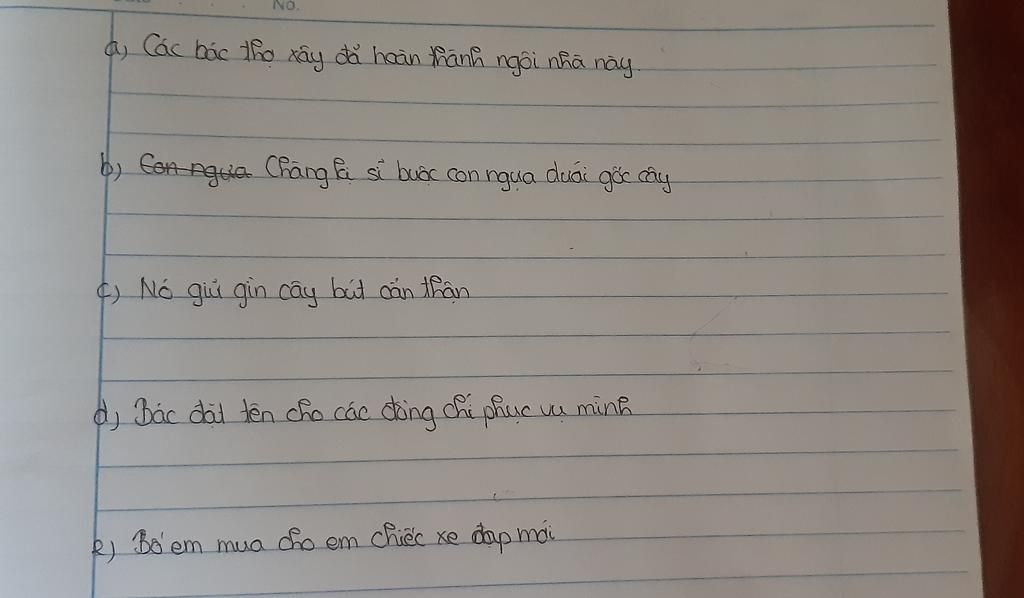 No.
a) Các bác thợ xây đã hoàn thành ngôi nhà này.
b) Con ngựa Chàng kị sĩ buộc con ngựa dưới gốc cây
c) Nó giữ gìn cây bút cẩn thận
d) Bác đặt tên cho các đồng chí phục vụ mình
e) Bố em mua cho em chiếc xe đạp mới